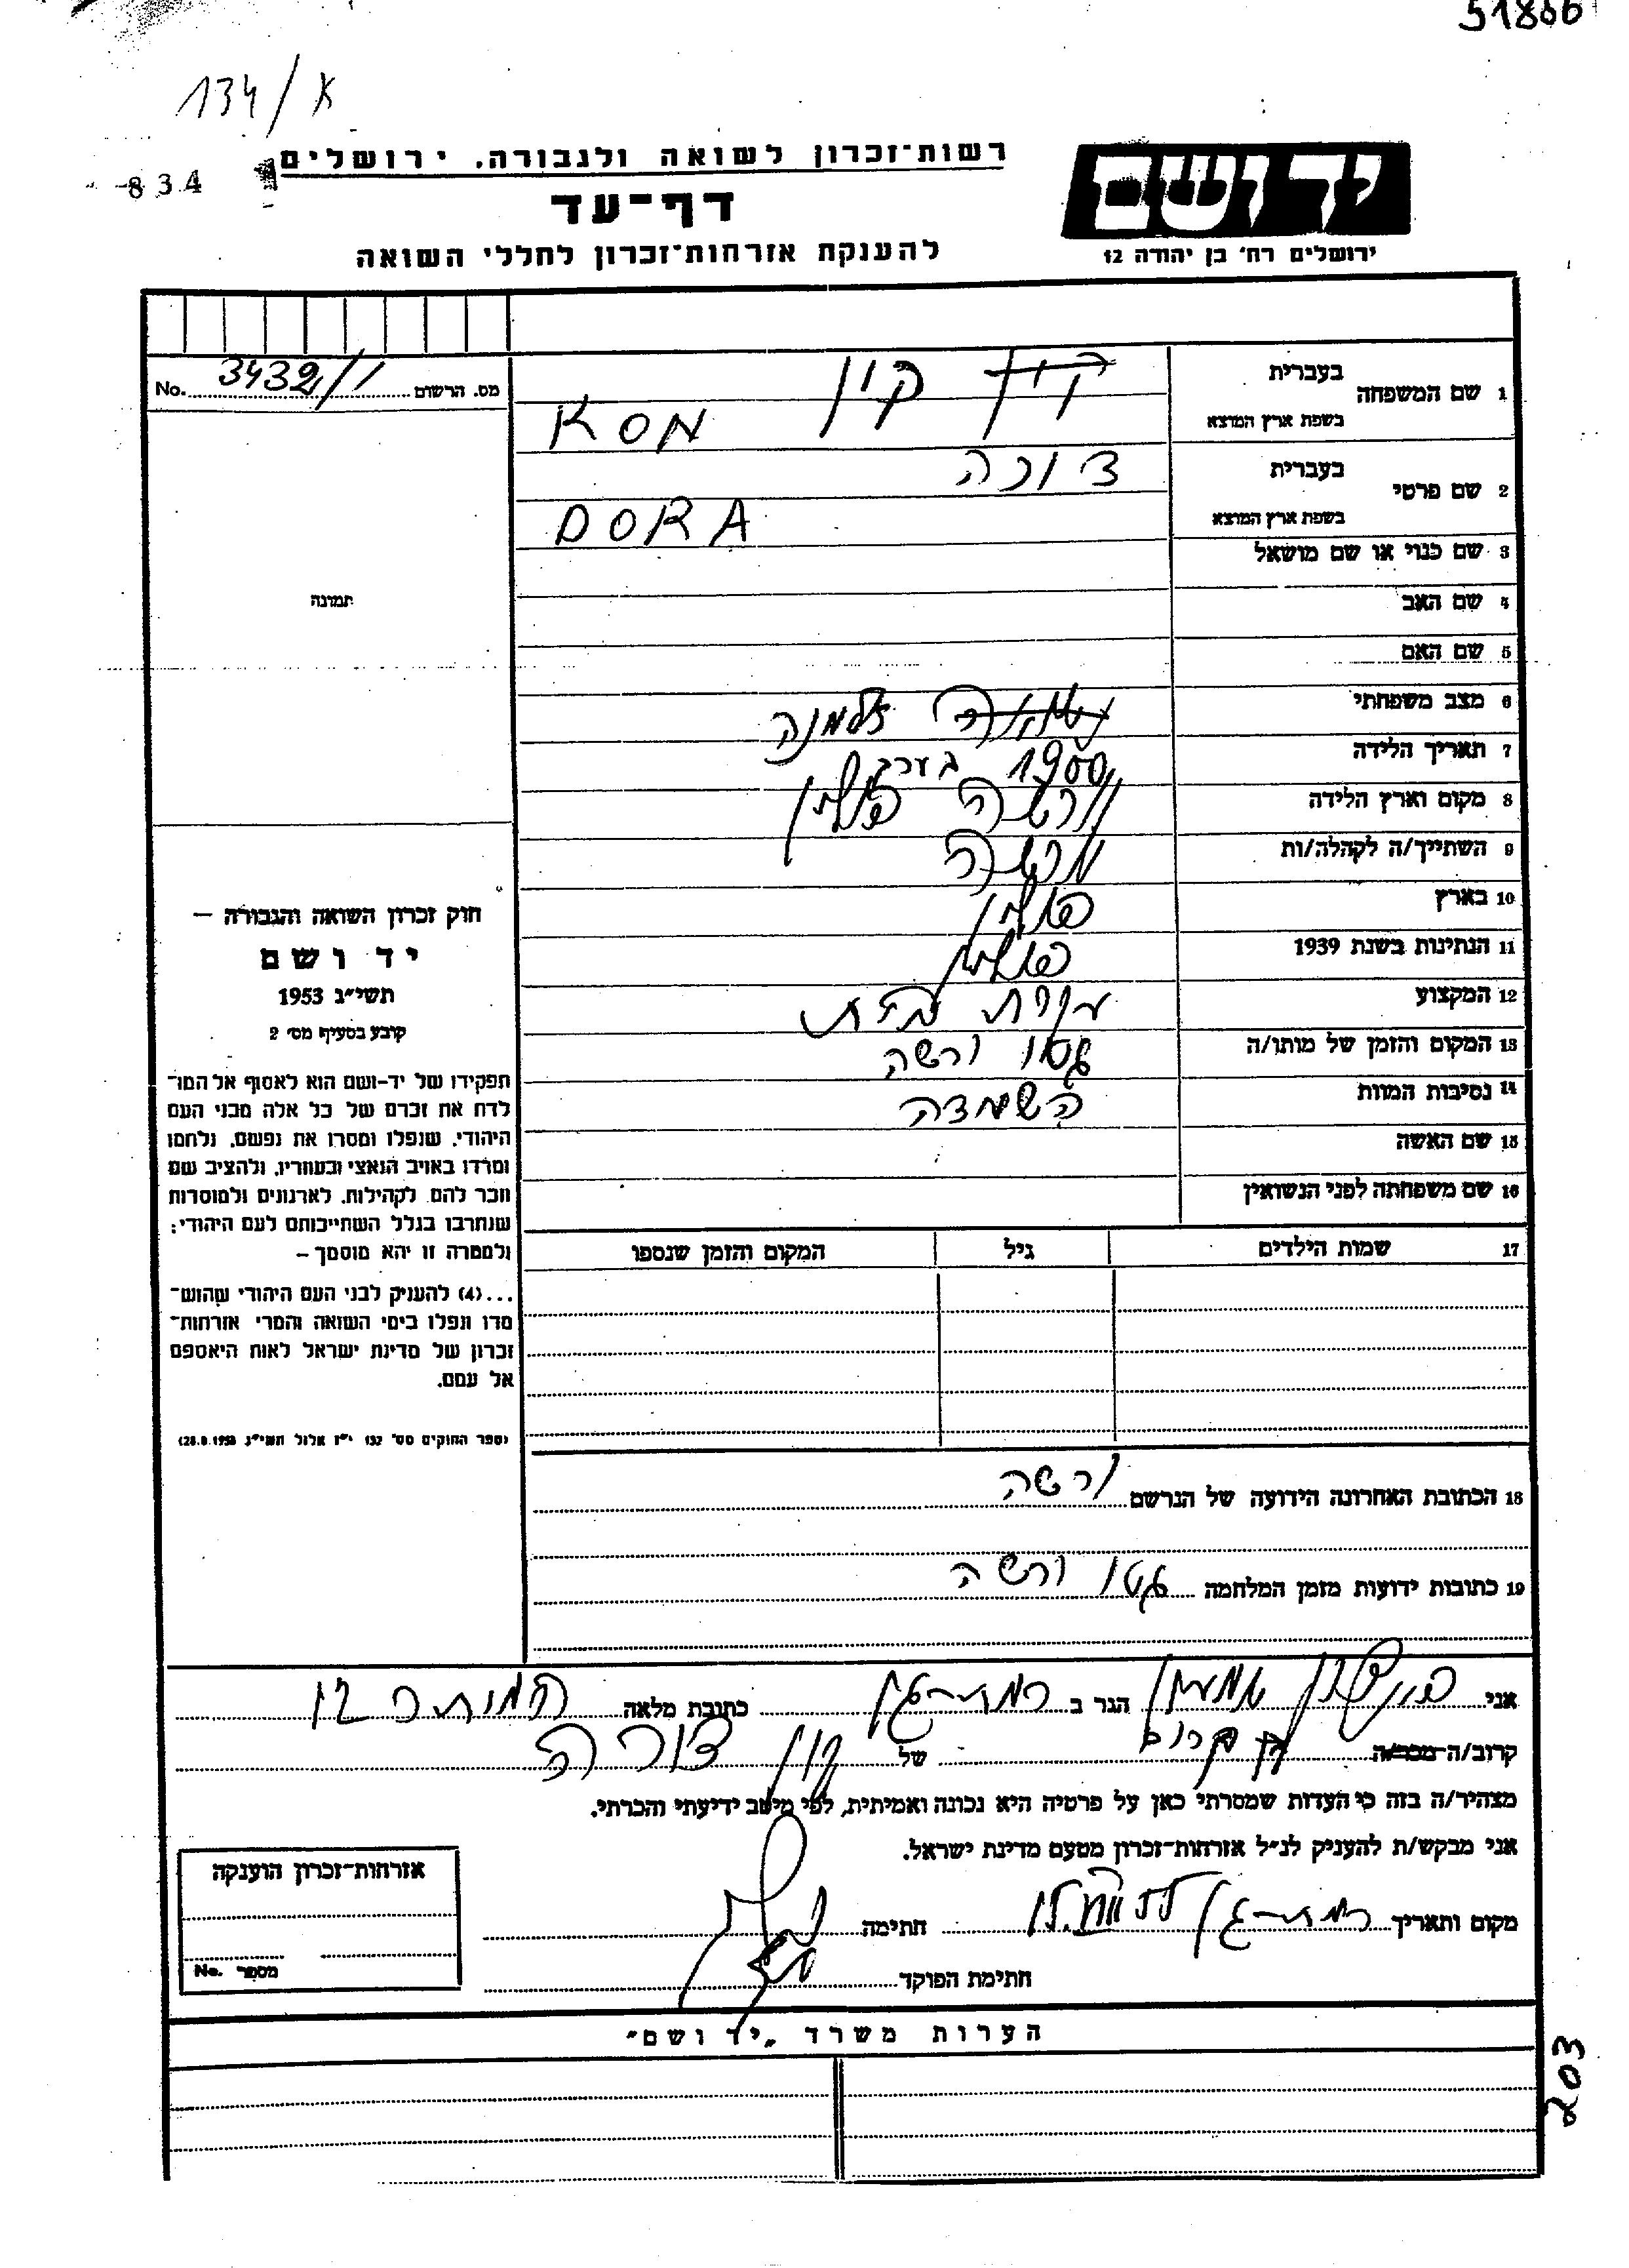 51866
134/א
834
רשות־זכרון לשואה ולגבורה. ירושלים
דף־עד
להענקת אזרחות־זכרון לחללי השואה
יד ושם
ירושלים רח׳ בן יהודה 12
מס. הרשום 3432/1 No.
1 שם המשפחה
בעברית קון קון
בשפת ארץ המוצא KON
2 שם פרטי
בעברית דורה
בשפת ארץ המוצא DORA
3 שם כנוי או שם מושאל
4 שם האב
5 שם האם
6 מצב משפחתי נשואה אלמנה
7 תאריך הלידה 1900 בערך
8 מקום וארץ הלידה ורשה פולין
9 השתייך/ה לקהלה/ות ורשה
10 בארץ פולין
11 הנתינות בשנת 1939 פולנית
12 המקצוע עקרת בית
13 המקום והזמן של מותו/ה גטו ורשה
14 נסיבות המוות השמדה
15 שם האשה
16 שם משפחתה לפני הנשואין
17 שמות הילדים גיל המקום והזמן שנספו
תמונה
חוק זכרון השואה והגבורה –
יד ושם
תשי״ג 1953
קובע בסעיף מס׳ 2
תפקידו של יד־ושם הוא לאסוף אל המו־
לדת את זכרם של כל אלה מבני העם
היהודי, שנפלו ומסרו את נפשם, נלחמו
ומרדו באויב הנאצי ובעוזריו, ולהציב שם
וזכר להם, לקהילות, לארגונים ולמוסדות
שנחרבו בגלל השתייכותם לעם היהודי;
ולמטרה זו יהא מוסמך –
...(4) להעניק לבני העם היהודי שהוש־
מדו ונפלו בימי השואה והמרי אזרחות־
זכרון של מדינת ישראל לאות היאספם
אל עמם.
(ספר החוקים מס׳ 132 י״ז אלול תשי״ג 28.8.1953)
18 הכתובת האחרונה הידועה של הנרשם ורשה
19 כתובות ידועות מזמן המלחמה גטו ורשה
אני הגר ב רמת־גן כתובת מלאה
קרוב/ה מכר/ה של קון דורה
מצהיר/ה בזה כי העדות שמסרתי כאן על פרטיה היא נכונה ואמיתית, לפי מיטב ידיעתי והכרתי.
אני מבקש/ת להעניק לנ״ל אזרחות־זכרון מטעם מדינת ישראל.
מקום ותאריך רמת־גן חתימה
חתימת הפוקד
אזרחות־זכרון הוענקה
מספר No.
הערות משרד „יד ושם״
203